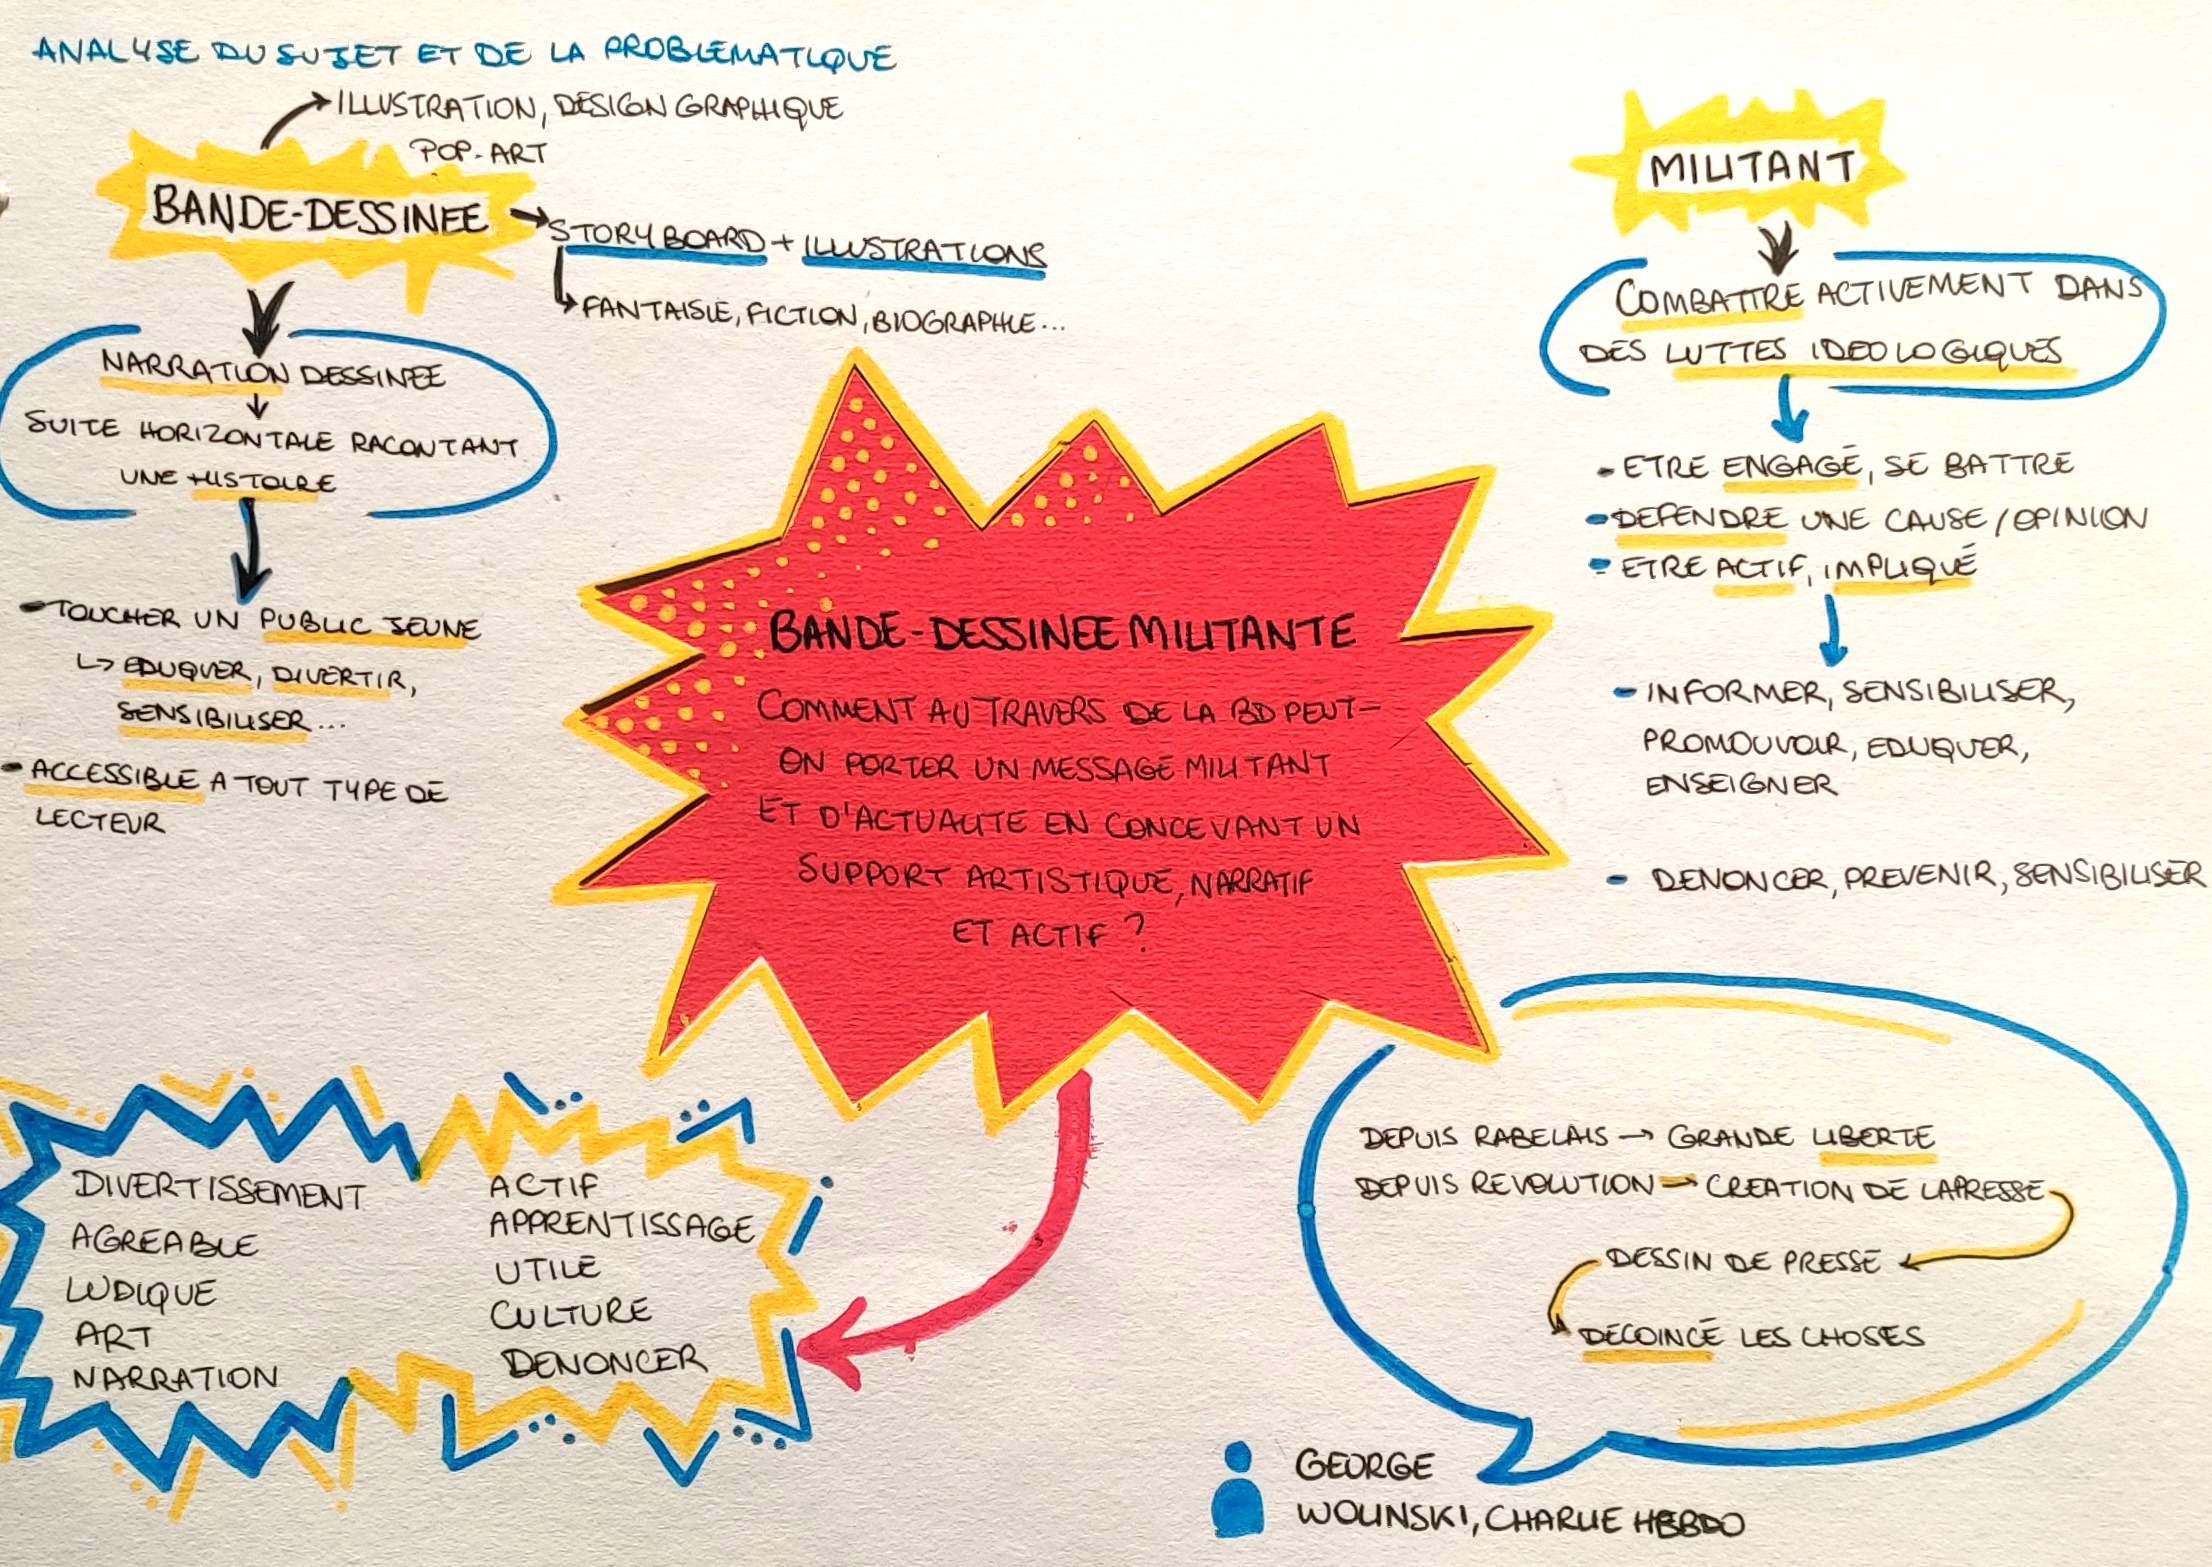 ANALYSE DU SUJET ET DE LA PROBLEMATIQUE
ILLUSTRATION, DESIGN GRAPHIQUE
POP-ART
BANDE-DESSINEE
STORYBOARD + ILLUSTRATIONS
FANTAISIE, FICTION, BIOGRAPHIE...
NARRATION DESSINEE
SUITE HORIZONTALE RACONTANT
UNE HISTOIRE
- TOUCHER UN PUBLIC JEUNE
EDUQUER, DIVERTIR,
SENSIBILISER...
- ACCESSIBLE A TOUT TYPE DE
LECTEUR
MILITANT
COMBATTRE ACTIVEMENT DANS
DES LUTTES IDEOLOGIQUES
- ETRE ENGAGÉ, SE BATTRE
- DEFENDRE UNE CAUSE / OPINION
- ETRE ACTIF, IMPLIQUÉ
- INFORMER, SENSIBILISER,
PROMOUVOIR, EDUQUER,
ENSEIGNER
- DENONCER, PREVENIR, SENSIBILISER
BANDE-DESSINEE MILITANTE
COMMENT AU TRAVERS DE LA BD PEUT-
ON PORTER UN MESSAGE MILITANT
ET D'ACTUALITE EN CONCEVANT UN
SUPPORT ARTISTIQUE, NARRATIF
ET ACTIF ?
DIVERTISSEMENT
AGREABLE
LUDIQUE
ART
NARRATION
ACTIF
APPRENTISSAGE
UTILE
CULTURE
DENONCER
DEPUIS RABELAIS → GRANDE LIBERTE
DEPUIS REVOLUTION → CREATION DE LA PRESSE
DESSIN DE PRESSE
DECOINCÉ LES CHOSES
GEORGE
WOLINSKI, CHARLIE HEBDO